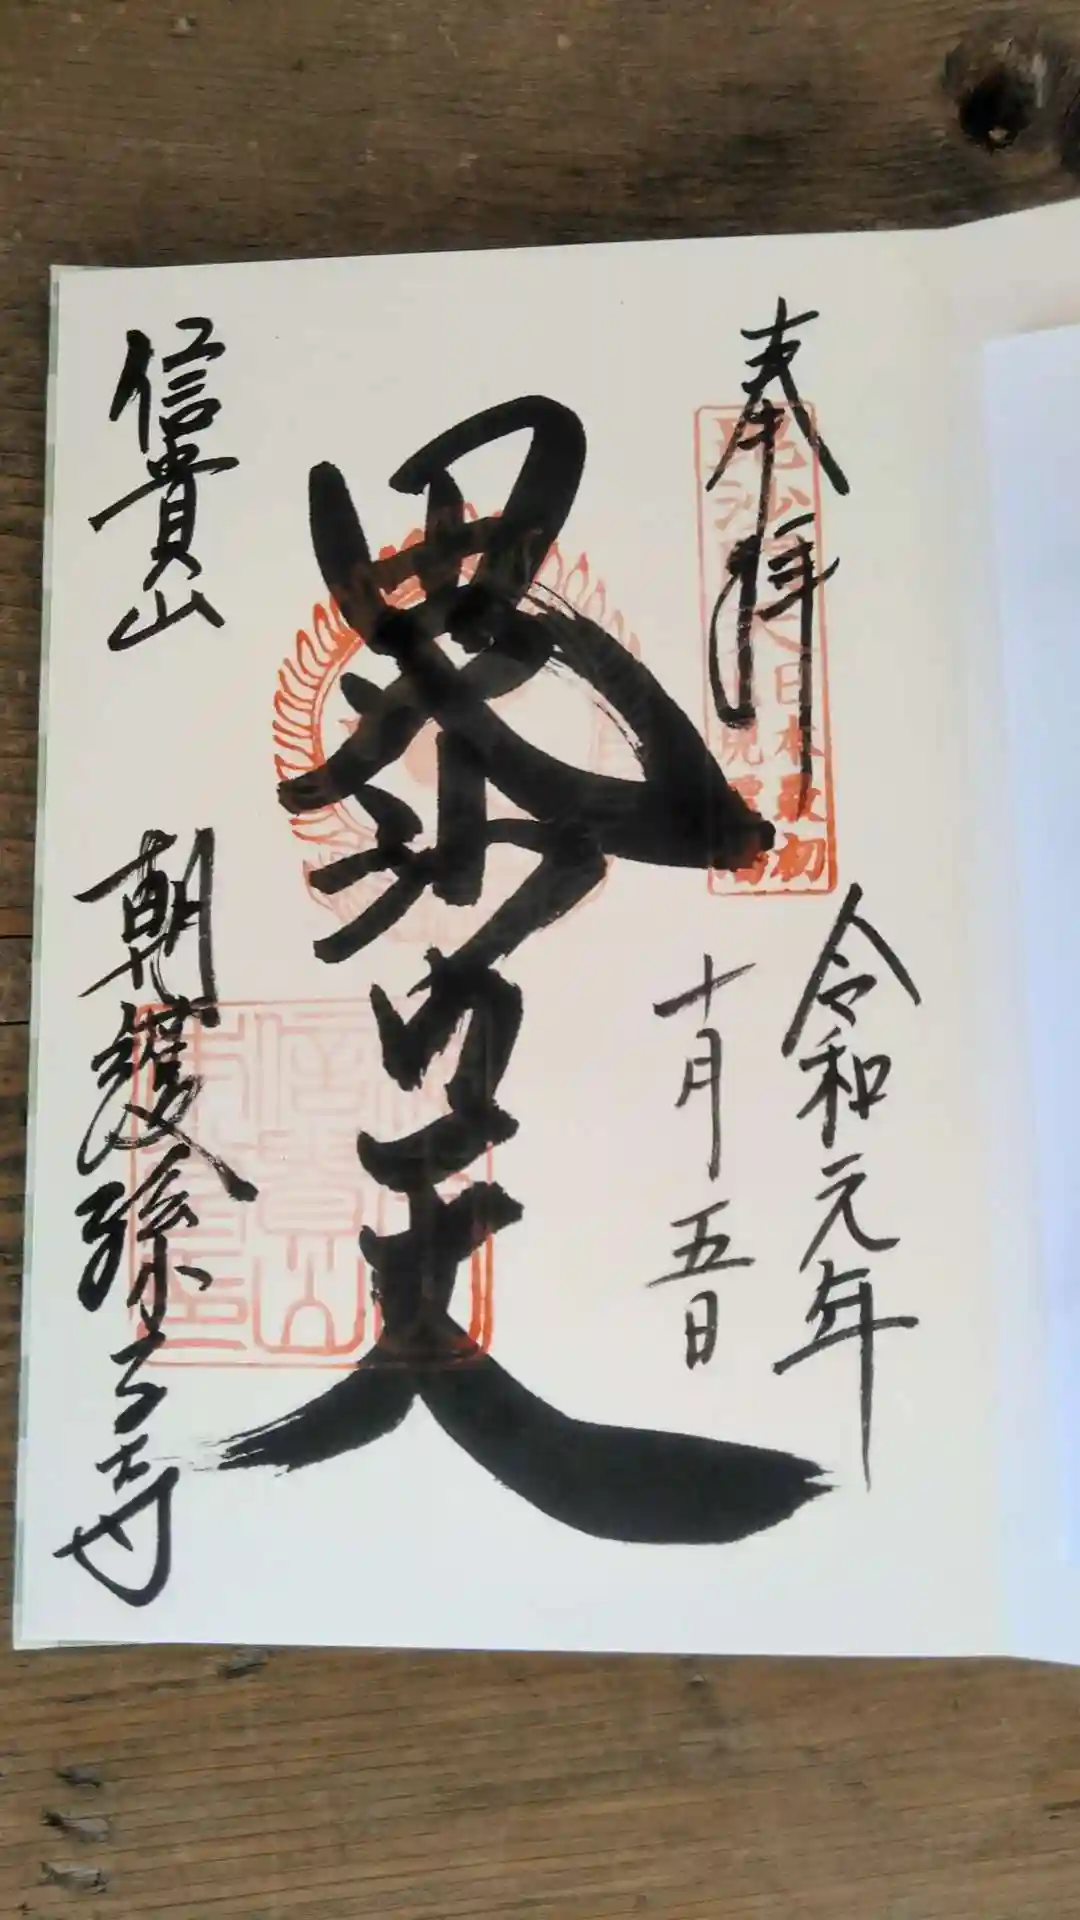 奉拝
毘沙門天王日本最初
出現霊場
令和元年
十月五日
毘沙門天
信貴山
朝護孫子寺